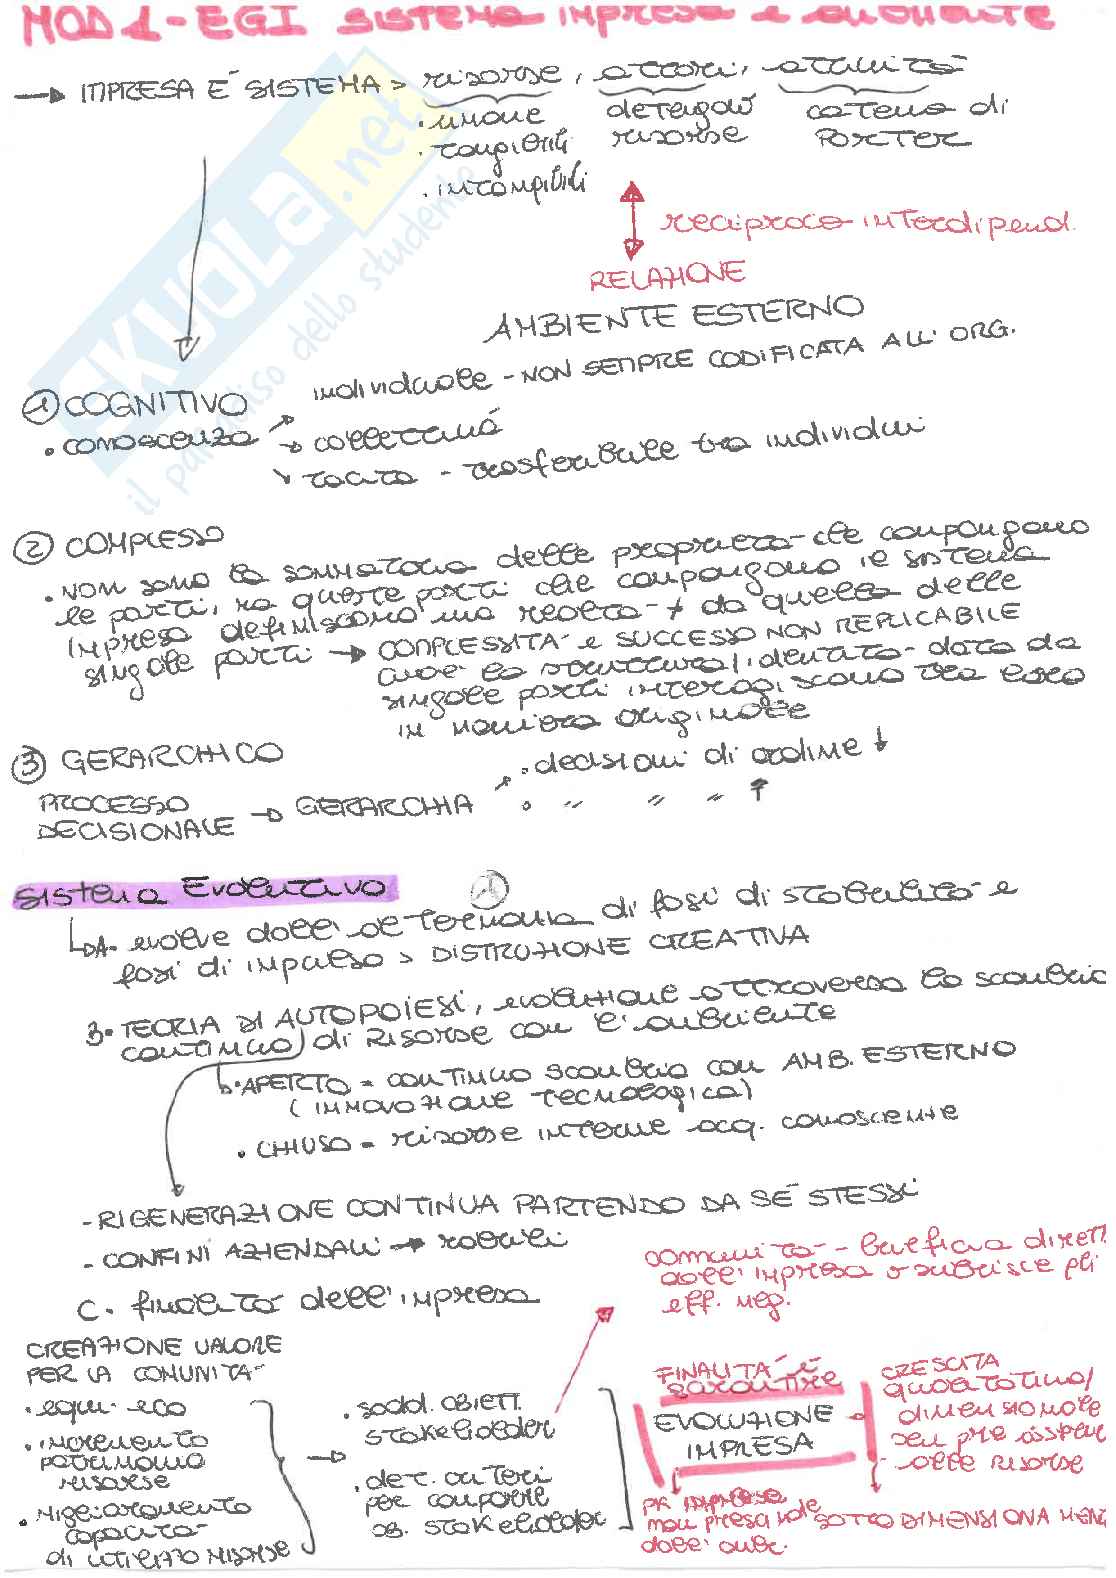 MOD 1 - EGI sistema impresa e ambiente
→ IMPRESA E' SISTEMA > risorse, attori, attività
• umane detengono catena di
• tangibili risorse PORTER
• intangibili
reciproca interdipend.
RELAZIONE
AMBIENTE ESTERNO
individuale - NON SEMPRE CODIFICATA ALL' ORG.
① COGNITIVO
• conoscenza → collettiva
tacita - trasferibile tra individui
② COMPLESSO
• non sono la sommatoria delle proprietà che compongono
le parti, ma queste parti che compongono il sistema
impresa definiscono una realtà ≠ da quella delle
singole parti → COMPLESSITÀ e SUCCESSO NON REPLICABILE
cioè la struttura/identità data da
singole parti interagiscono tra loro
in maniera originale
③ GERARCHICO
• decisioni di ordine ↓
PROCESSO
DECISIONALE → GERARCHIA • " " " ↑
Sistema Evolutivo
DA• evolve dall' alternanza di fasi di stabilità e
fasi di impulso > DISTRUZIONE CREATIVA
B• TEORIA DI AUTOPOIESI, evoluzione attraverso lo scambio
continuo di RISORSE con l'ambiente
• APERTO = continuo scambio con AMB. ESTERNO
(INNOVAZIONE TECNOLOGICA)
• CHIUSO = risorse interne acq. conoscenze
- RIGENERAZIONE CONTINUA PARTENDO DA SÉ STESSI
- CONFINI AZIENDALI → labili
C. finalità dell'impresa
comunità - beneficia dirett
dall' impresa o subisce gli
eff. neg.
CREAZIONE VALORE
PER LA COMUNITÀ
• equi. eco
• incremento
patrimonio
risorse
• miglioramento
capacità
di utilizzo risorse
→ • sodd. obiett.
stakeholder
• det. criteri
per comporre
ob. stakeholder
FINALITÀ È
garantire
EVOLUZIONE
IMPRESA
CRESCITA
quantitativa/
dimensionale
alle risorse
PK impresa
non presa
dall' amb.
SOTTO DIMENSIONAMEN
SKUOLA.net
il paradiso dello studente